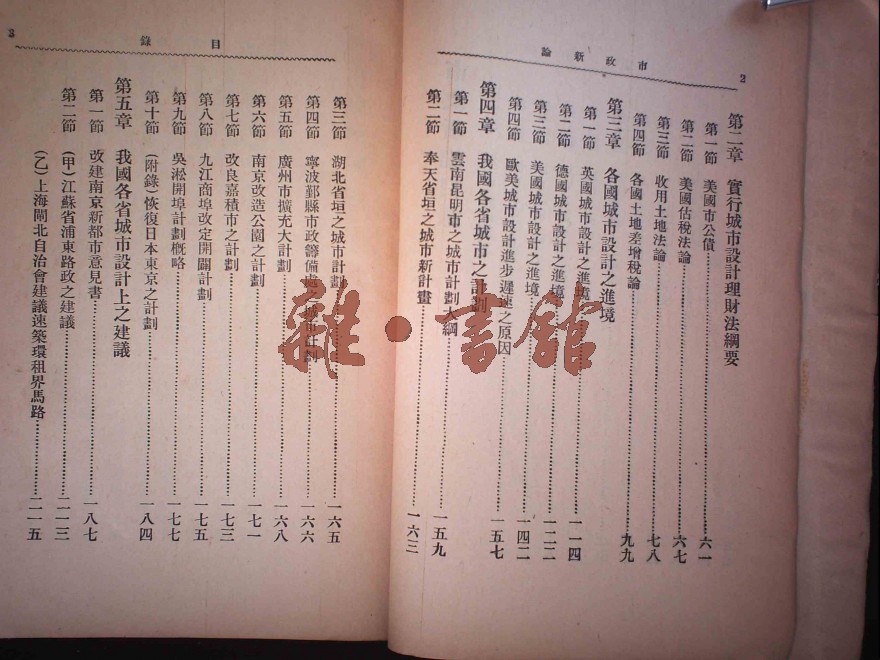 市政新論
2
第二章　實行城市設計理財法綱要
第一節　美國市公債……六一
第二節　美國估稅法論……六七
第三節　收用土地法論……七八
第四節　各國土地差增稅論……九九
第三章　各國城市設計之進境
第一節　英國城市設計之進境……一一四
第二節　德國城市設計之進境……一二二
第三節　美國城市設計之進境……一四二
第四節　歐美城市設計進步遲速之原因……一五七
第四章　我國各省城市之計劃
第一節　雲南昆明市之城市計劃大綱……一五九
第二節　奉天省垣之城市新計畫……一六三
目錄
3
第三節　湖北省垣之城市計劃……一六五
第四節　寧波鄞縣市政籌備處之城市計劃……一六六
第五節　廣州市擴充大計劃……一六八
第六節　南京改造公園之計劃……一七一
第七節　改良嘉積市之計劃……一七三
第八節　九江商埠改定開闢計劃……一七五
第九節　吳淞開埠計劃概略……一七七
第十節　(附錄)恢復日本東京之計劃……一八四
第五章　我國各省城市設計上之建議
第一節　改建南京新都市意見書……一八七
第二節　(甲)江蘇省浦東路政之建議……二一三
(乙)上海閘北自治會建議速築環租界馬路……二一五
雜·書館